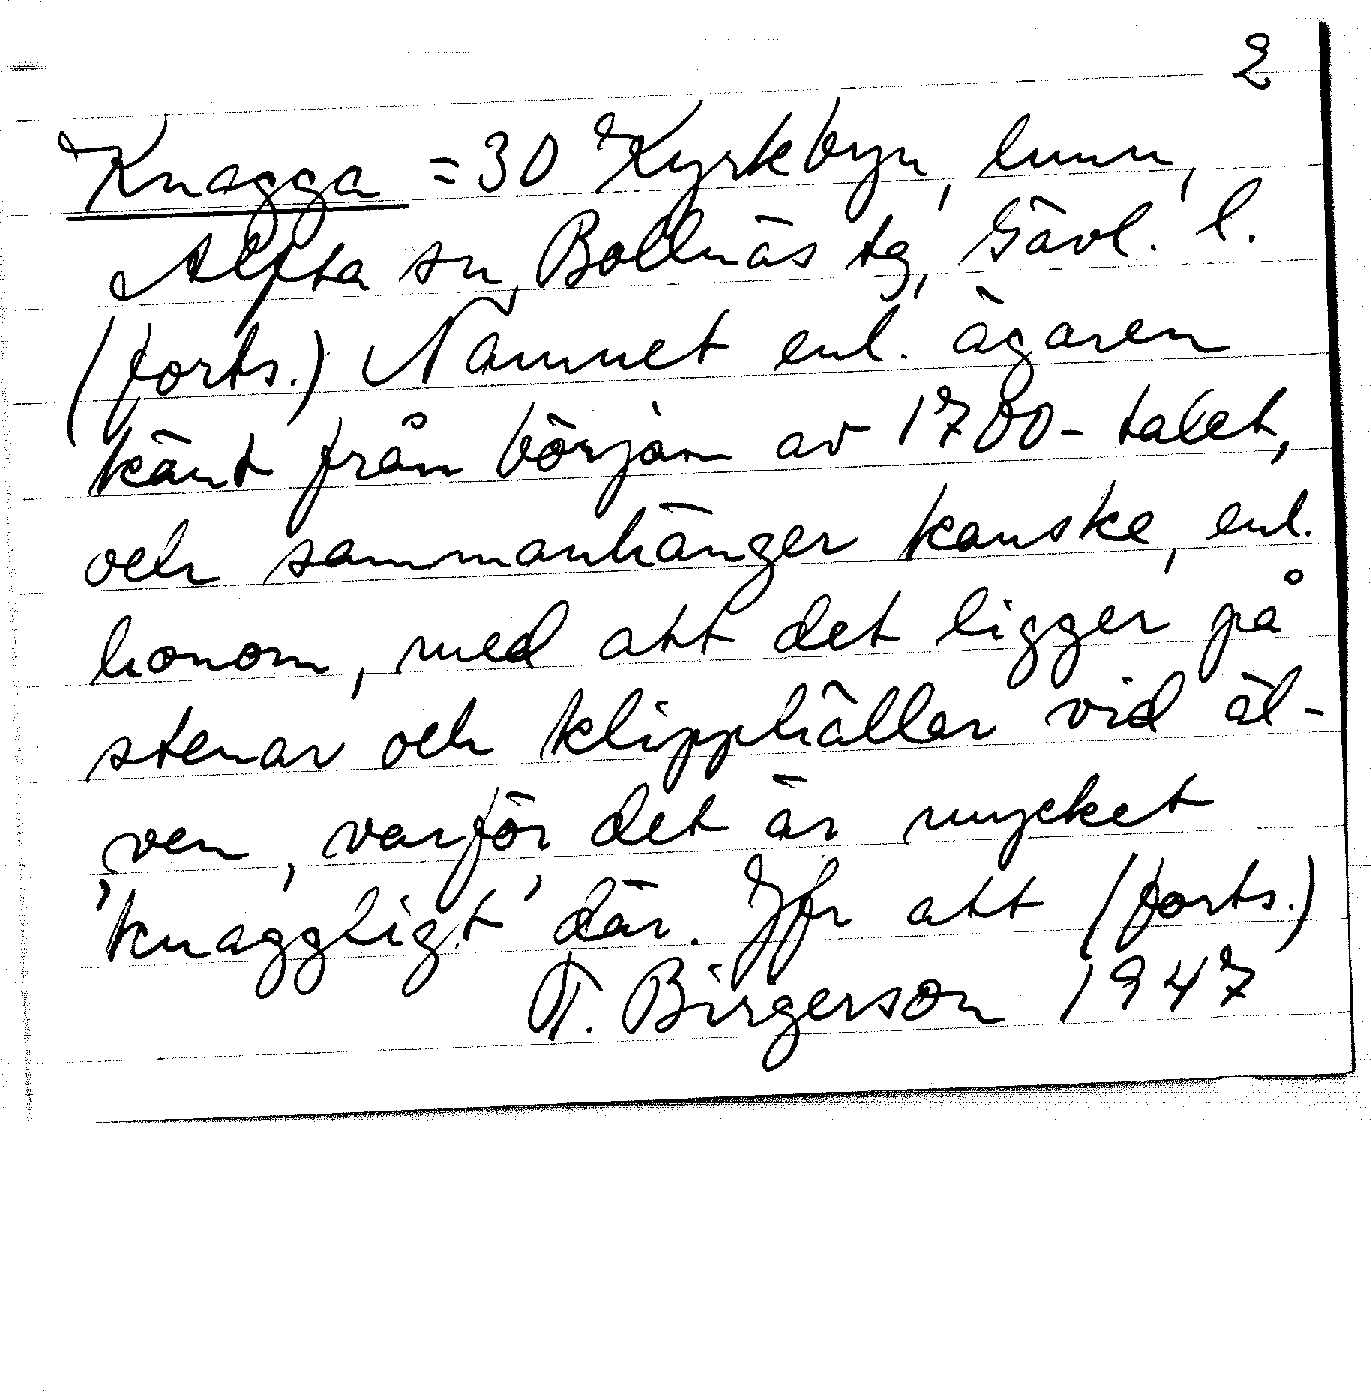 2
Knagga = 30 Kyrkbyn, hmn,
Alfta sn, Bollnäs tg, Gävl. l.
(forts.) Namnet enl. ägaren
känt från början av 1700-talet,
och sammanhänger kanske, enl.
honom, med att det ligger på
stenar och klipphällar vid äl-
ven, varför det är mycket
'knaggligt' där. Jfr att (forts.)
T. Birgerson 1947